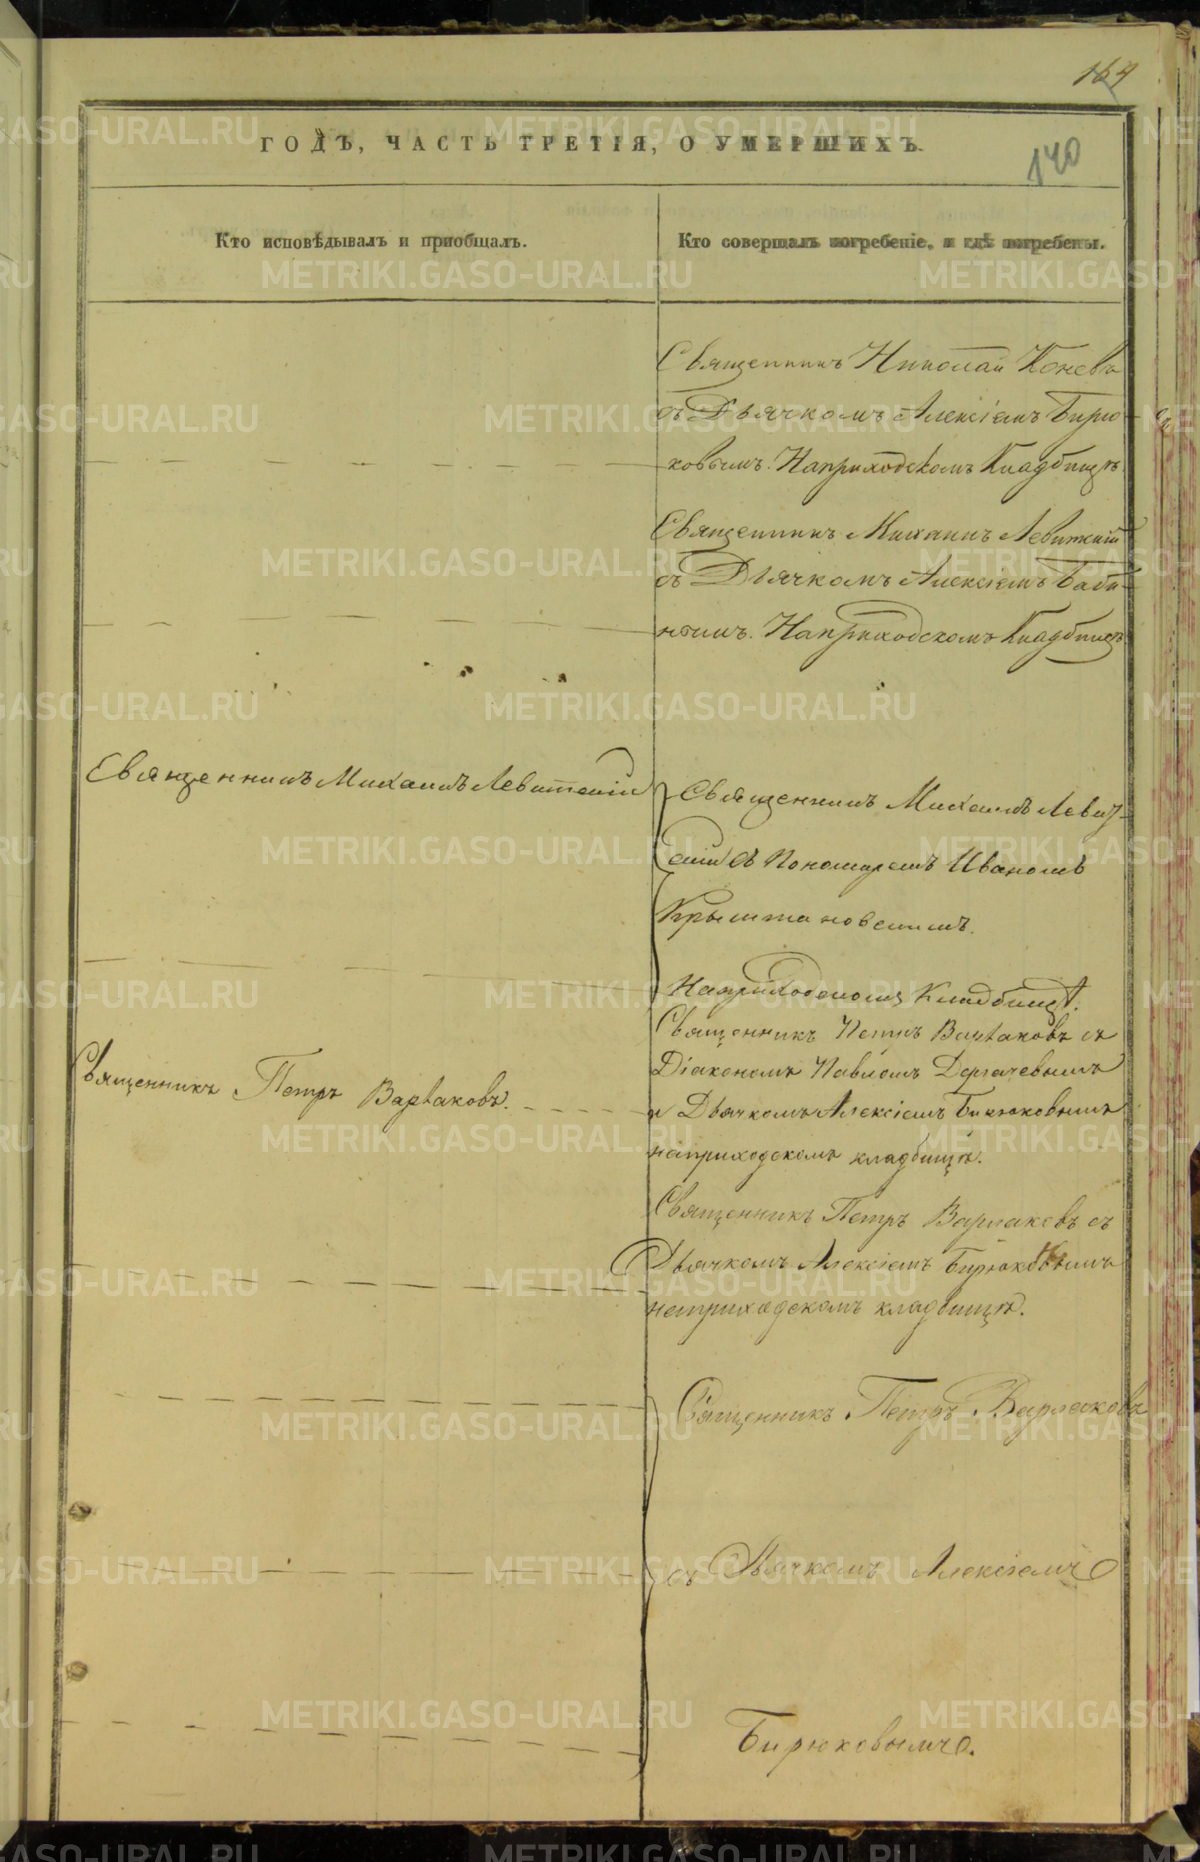 169
ГОДЪ, ЧАСТЬ ТРЕТІЯ, О УМЕРШИХЪ.
140
Кто исповѣдывалъ и пріобщалъ.
Кто совершалъ погребеніе, и гдѣ погребены.
Священникъ Николай Коневъ
съ Дьячкомъ Алексіемъ Бирю-
ковымъ. На приходскомъ Кладбищѣ.
Священникъ Михаилъ Левитскій
съ Дьячкомъ Алексіемъ
На приходскомъ Кладбищѣ
Священникъ Михаилъ Левитскій
Священникъ Михаилъ Левит-
скій съ Пономаремъ Иваномъ
На приходскомъ Кладбищѣ.
Священникъ Петръ Варлаковъ.
Священникъ Петръ Варлаковъ съ
Діакономъ Павломъ Дергачевымъ
и Дьячкомъ Алексіемъ Бирюковымъ
на приходскомъ кладбищѣ.
Священникъ Петръ Варлаковъ съ
Дьячкомъ Алексіемъ Бирюковымъ
на приходскомъ кладбищѣ.
Священникъ Петръ Варлаковъ
съ Дьячкомъ Алексіемъ
Бирюковымъ.
METRIKI.GASO-URAL.RU